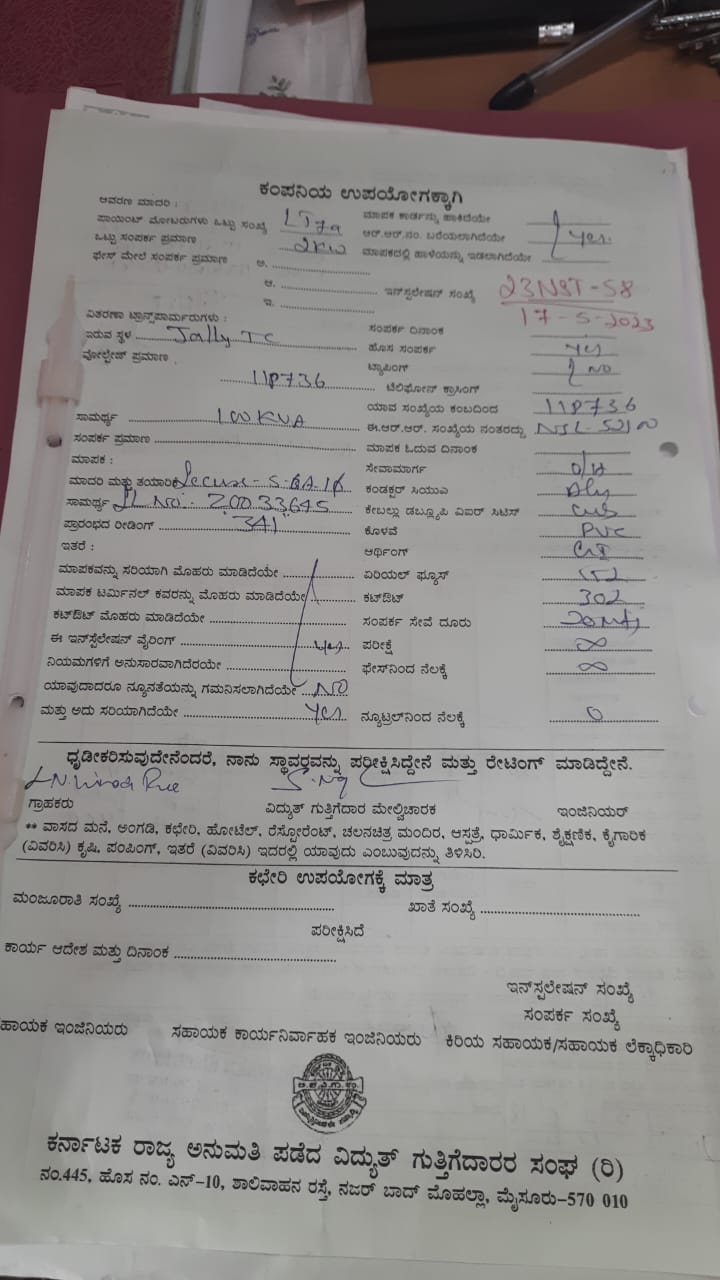 ಕಂಪನಿಯ ಉಪಯೋಗಕ್ಕಾಗಿ
ಆವರಣ ಮಾದರಿ :
ಪಾಯಿಂಟ್ ಮೋಟರುಗಳು ಒಟ್ಟು ಸಂಖ್ಯೆ LT7a
ಒಟ್ಟು ಸಂಪರ್ಕ ಪ್ರಮಾಣ 2KW
ಫೇಸ್ ಮೇಲೆ ಸಂಪರ್ಕ ಪ್ರಮಾಣ ಅ.
ಆ.
ಇ.
ವಿತರಣಾ ಟ್ರಾನ್ಸ್‌ಪಾರ್ಮರುಗಳು :
ಇರುವ ಸ್ಥಳ Jally TC
ವೋಲ್ಟೇಜ್ ಪ್ರಮಾಣ
118736
ಸಾಮರ್ಥ್ಯ 100KVA
ಸಂಪರ್ಕ ಪ್ರಮಾಣ
ಮಾಪಕ :
ಮಾದರಿ ಮತ್ತು ತಯಾರಿಕೆ Secure
ಸಾಮರ್ಥ್ಯ SL No: 20033645
ಪ್ರಾರಂಭದ ರೀಡಿಂಗ್ 341
ಇತರೆ :
ಮಾಪಕವನ್ನು ಸರಿಯಾಗಿ ಮೊಹರು ಮಾಡಿದೆಯೇ
ಮಾಪಕ ಟರ್ಮಿನಲ್ ಕವರನ್ನು ಮೊಹರು ಮಾಡಿದೆಯೇ
ಕಟ್‌ಔಟ್ ಮೊಹರು ಮಾಡಿದೆಯೇ
ಈ ಇನ್‌ಸ್ಟಲೇಷನ್ ವೈರಿಂಗ್ yes
ನಿಯಮಗಳಿಗೆ ಅನುಸಾರವಾಗಿದೆರಯೇ
ಯಾವುದಾದರೂ ನ್ಯೂನತೆಯನ್ನು ಗಮನಿಸಲಾಗಿದೆಯೇ NO
ಮತ್ತು ಅದು ಸರಿಯಾಗಿದೆಯೇ yes
ಮಾಪಕ ಕಾರ್ಡನ್ನು ಹಾಕಿದೆಯೇ
ಆರ್.ಆರ್.ನಂ. ಬರೆಯಲಾಗಿದೆಯೇ yes
ಮಾಪಕದಲ್ಲಿ ಹಾಳೆಯನ್ನು ಇಡಲಾಗಿದೆಯೇ
ಇನ್‌ಸ್ಪಲೇಷನ್ ಸಂಖ್ಯೆ 23NST-58
17-5-2023
ಸಂಪರ್ಕ ದಿನಾಂಕ
ಹೊಸ ಸಂಪರ್ಕ yes
ಟ್ಯಾಪಿಂಗ್ NO
ಟೆಲಿಫೋನ್ ಕ್ರಾಸಿಂಗ್
ಯಾವ ಸಂಖ್ಯೆಯ ಕಂಬದಿಂದ 118736
ಈ.ಆರ್.ಆರ್. ಸಂಖ್ಯೆಯ ನಂತರದ್ದು
ಮಾಪಕ ಓದುವ ದಿನಾಂಕ
ಸೇವಾಮಾರ್ಗ O/H
ಕಂಡಕ್ಟರ್ ಸಿಯುಎ
ಕೇಬಲ್ಲು ಡಬ್ಲ್ಯೂಪಿ ವಿಐಆರ್ ಸಿಟಿಸ್
ಕೊಳವೆ PVC
ಆರ್ಥಿಂಗ್
ಏರಿಯಲ್ ಫ್ಯೂಸ್
ಕಟ್‌ಔಟ್ 302
ಸಂಪರ್ಕ ಸೇವೆ ದೂರು 20Mtj
ಪರೀಕ್ಷೆ ∞
ಫೇಸ್‌ನಿಂದ ನೆಲಕ್ಕೆ ∞
ನ್ಯೂಟ್ರಲ್‌ನಿಂದ ನೆಲಕ್ಕೆ 0
ಧೃಡೀಕರಿಸುವುದೇನೆಂದರೆ, ನಾನು ಸ್ಥಾವರವನ್ನು ಪರೀಕ್ಷಿಸಿದ್ದೇನೆ ಮತ್ತು ರೇಟಿಂಗ್ ಮಾಡಿದ್ದೇನೆ.
ಗ್ರಾಹಕರು ವಿದ್ಯುತ್ ಗುತ್ತಿಗೆದಾರ ಮೇಲ್ವಿಚಾರಕ ಇಂಜಿನಿಯರ್
** ವಾಸದ ಮನೆ, ಅಂಗಡಿ, ಕಛೇರಿ, ಹೋಟೆಲ್, ರೆಸ್ಟೋರೆಂಟ್, ಚಲನಚಿತ್ರ ಮಂದಿರ, ಆಸ್ಪತ್ರೆ, ಧಾರ್ಮಿಕ, ಶೈಕ್ಷಣಿಕ, ಕೈಗಾರಿಕ
(ವಿವರಿಸಿ) ಕೃಷಿ, ಪಂಪಿಂಗ್, ಇತರೆ (ವಿವರಿಸಿ) ಇದರಲ್ಲಿ ಯಾವುದು ಎಂಬುವುದನ್ನು ತಿಳಿಸಿರಿ.
ಕಛೇರಿ ಉಪಯೋಗಕ್ಕೆ ಮಾತ್ರ
ಮಂಜೂರಾತಿ ಸಂಖ್ಯೆ ಖಾತೆ ಸಂಖ್ಯೆ
ಪರೀಕ್ಷಿಸಿದೆ
ಕಾರ್ಯ ಆದೇಶ ಮತ್ತು ದಿನಾಂಕ
ಇನ್‌ಸ್ಪಲೇಷನ್ ಸಂಖ್ಯೆ
ಸಂಪರ್ಕ ಸಂಖ್ಯೆ
ಹಾಯಕ ಇಂಜಿನಿಯರು ಸಹಾಯಕ ಕಾರ್ಯನಿರ್ವಾಹಕ ಇಂಜಿನಿಯರು ಕಿರಿಯ ಸಹಾಯಕ/ಸಹಾಯಕ ಲೆಕ್ಕಾಧಿಕಾರಿ
ಕರ್ನಾಟಕ ರಾಜ್ಯ ಅನುಮತಿ ಪಡೆದ ವಿದ್ಯುತ್ ಗುತ್ತಿಗೆದಾರರ ಸಂಘ (ರಿ)
ನಂ.445, ಹೊಸ ನಂ. ಎನ್-10, ಶಾಲಿವಾಹನ ರಸ್ತೆ, ನಜರ್ ಬಾದ್ ಮೊಹಲ್ಲಾ, ಮೈಸೂರು-570 010